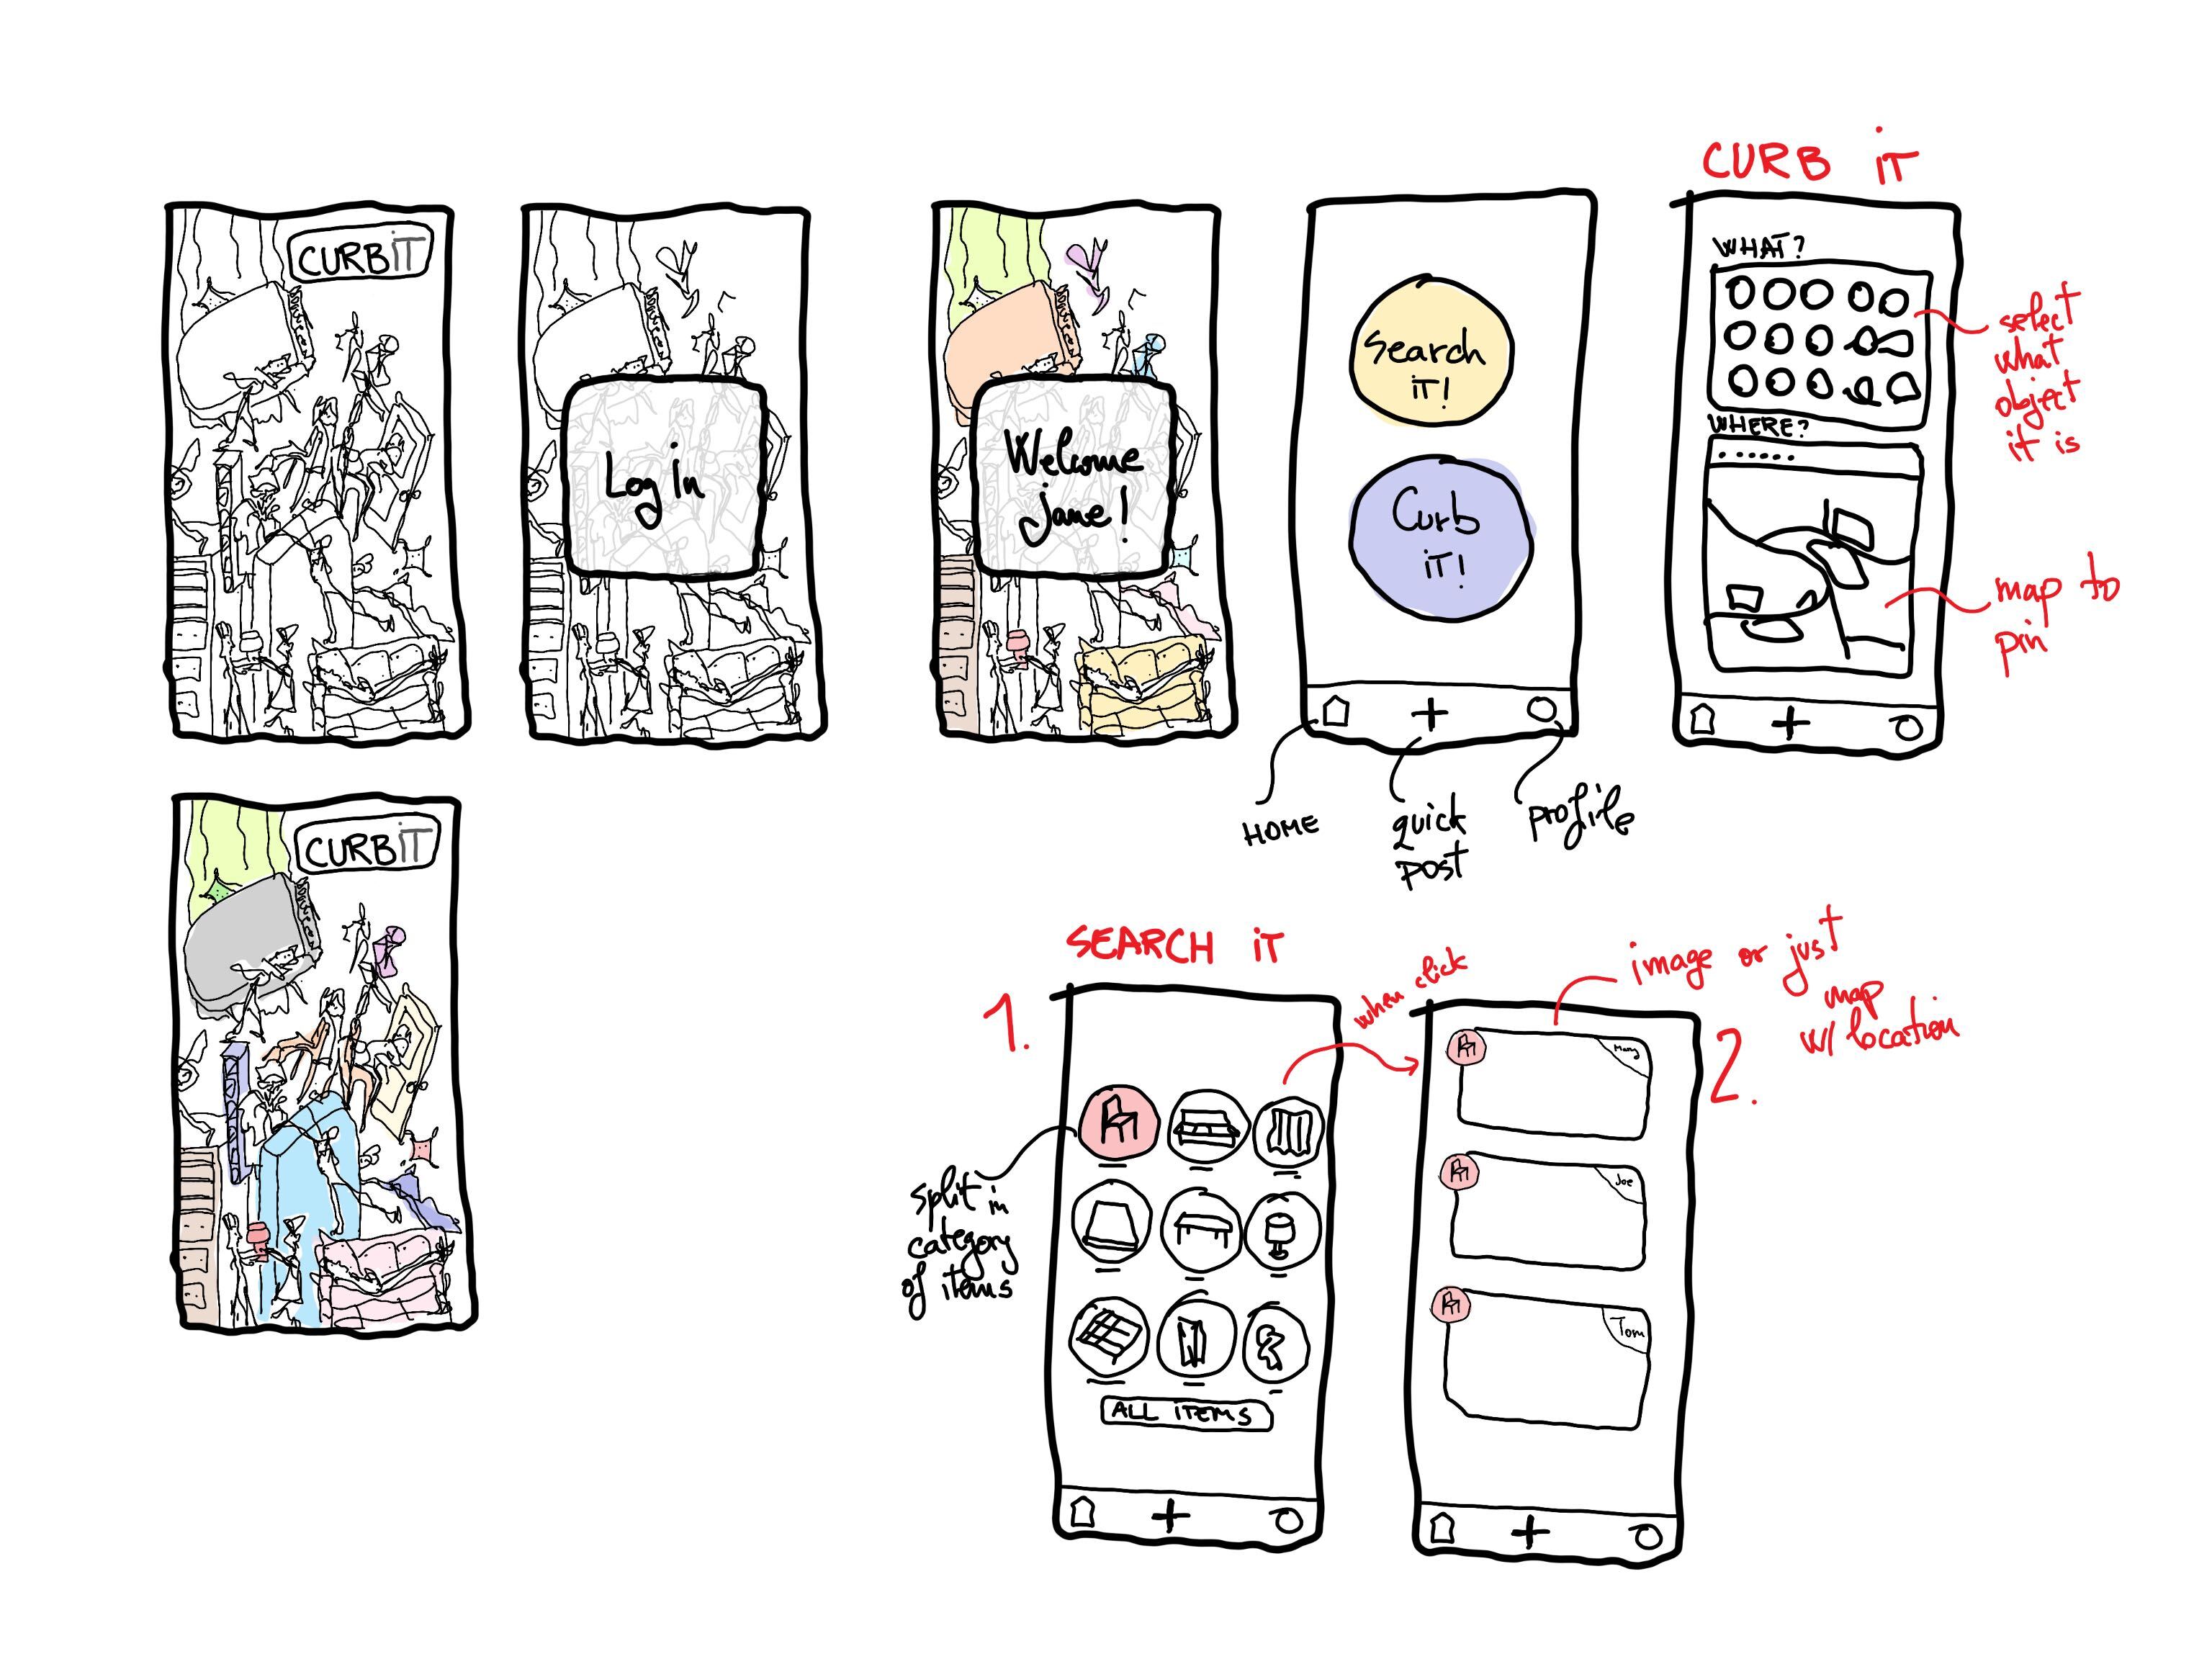 CURBiT
Log in
Welcome
jane!
Search
iT!
Curb
iT!
HOME
quick
post
profile
CURB iT
WHAT?
WHERE?
select
what
object
it is
map to
pin
CURBiT
SEARCH iT
1.
split in
category
of items
ALL iTEMS
when click
image or just
map
w/ location
2.
Mary
Joe
Tom